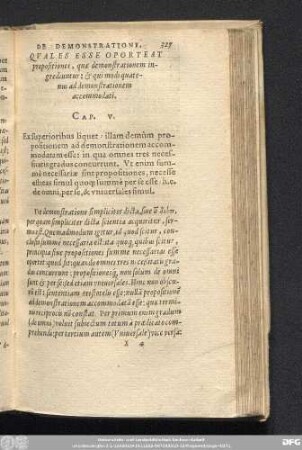 DE DEMONSTRATIONE. 327
QVALES ESSE OPORTEAT
propositiones, quæ demonstrationem in-
grediuntur: & qui modi quate-
nus ad demonstrationem
accommodati.
CAP. V.
Ex superioribus liquet: illam demùm pro-
positionem ad demonstrationem accom-
modatam esse: in qua omnes tres neces-
sitatis gradus concurrunt. Vt enim sum-
mè necessariæ sint propositiones, necesse
est eas simul quoque summè per se esse: h.e.
de omni, per se, & vniuersales simul.
De demonstratione simpliciter dicta,
per quam simpliciter dicta scientia acquiritur, ser-
mo est. Quemadmodum igitur, id quod scitur, con-
clusio summè necessaria est: ita quoque, quibus scitur,
principia siue propositiones summè necessarias esse
oportet
dus concurrunt: propositionesque, non solum de omni
sint & per se: sed etiam vniuersales. Hinc non obscu-
propositionē
ad demonstrationem accommodatā esse: quæ termi-
nis reciprocis nō constat. Per primum enim gradum
(de omni) volvit subiectum totum à prædicato com-
prehendi: per tertium autem (Vniuersale) vice versa:
X 4